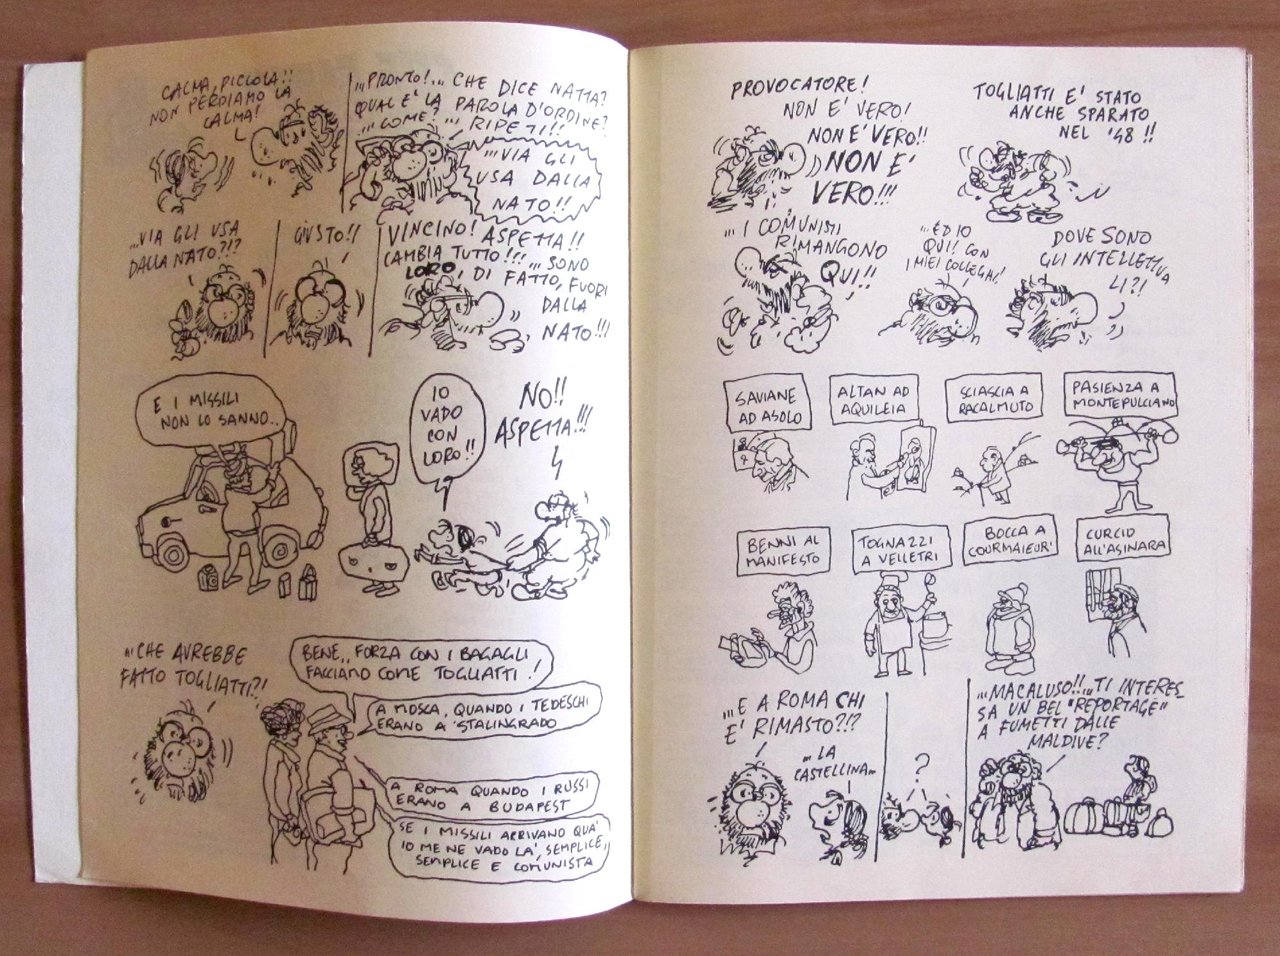 CALMA, PICCOLA!!
NON PERDIAMO LA
CALMA!
...PRONTO!... CHE DICE NATTA?
QUAL E' LA PAROLA D'ORDINE?
...COME?... RIPETI!!
...VIA GLI
USA DALLA
NATO!!
...VIA GLI USA
DALLA NATO?!?
GIUSTO!!
VINCINO! ASPETTA!!
CAMBIA TUTTO!!!...SONO
LORO, DI FATTO, FUORI
DALLA
NATO!!!
E I MISSILI
NON LO SANNO..
IO
VADO
CON
LORO!!
NO!!
ASPETTA!!!
...CHE AVREBBE
FATTO TOGLIATTI?!
BENE.. FORZA CON I BAGAGLI
FACCIAMO COME TOGLIATTI!
A MOSCA, QUANDO I TEDESCHI
ERANO A STALINGRADO
A ROMA QUANDO I RUSSI
ERANO A BUDAPEST
SE I MISSILI ARRIVANO QUA'
IO ME NE VADO LA', SEMPLICE,
SEMPLICE E COMUNISTA
PROVOCATORE!
NON E' VERO!
NON E' VERO!!
NON E'
VERO!!!
TOGLIATTI E' STATO
ANCHE SPARATO
NEL '48!!
...I COMUNISTI
RIMANGONO
QUI!!
...ED IO
QUI! CON
I MIEI COLLEGHI!
DOVE SONO
GLI INTELLETTUA
LI?!
SAVIANE
AD ASOLO
ALTAN AD
AQUILEIA
SCIASCIA A
RACALMUTO
PASIENZA A
MONTEPULCIANO
BENNI AL
MANIFESTO
TOGNAZZI
A VELLETRI
BOCCA A
COURMAIEUR'
CURCIO
ALL'ASINARA
...E A ROMA CHI
E' RIMASTO?!?
...LA
CASTELLINA...
?
...MACALUSO!!...TI INTERES
SA UN BEL "REPORTAGE"
A FUMETTI DALLE
MALDIVE?